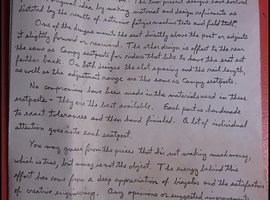 original idea by making material and design refinements as
dictated by the results of extensive fatigue machine tests and field tests.
One of the designs mounts the seat directly above the post or adjusts
it slightly forward or rearward. The other design is offset to the rear
the same as Campy seatposts for riders that like to have the seat set
farther back. On both designs the slot spacing and the rail length,
as well as the adjustment range are the same as Campy seatposts.
No compromises have been made in the materials used in these
seatposts - They are the best available. Each part is handmade
to exact tolerances and then hand finished. A lot of individual
attention goes into each seatpost.
You may guess from the prices that I'm not making much money,
which is true, but money is not the object. The energy behind this
effort has come from a deep appreciation of bicycles and the satisfaction
of creative engineering. Any opinions or suggested improvements